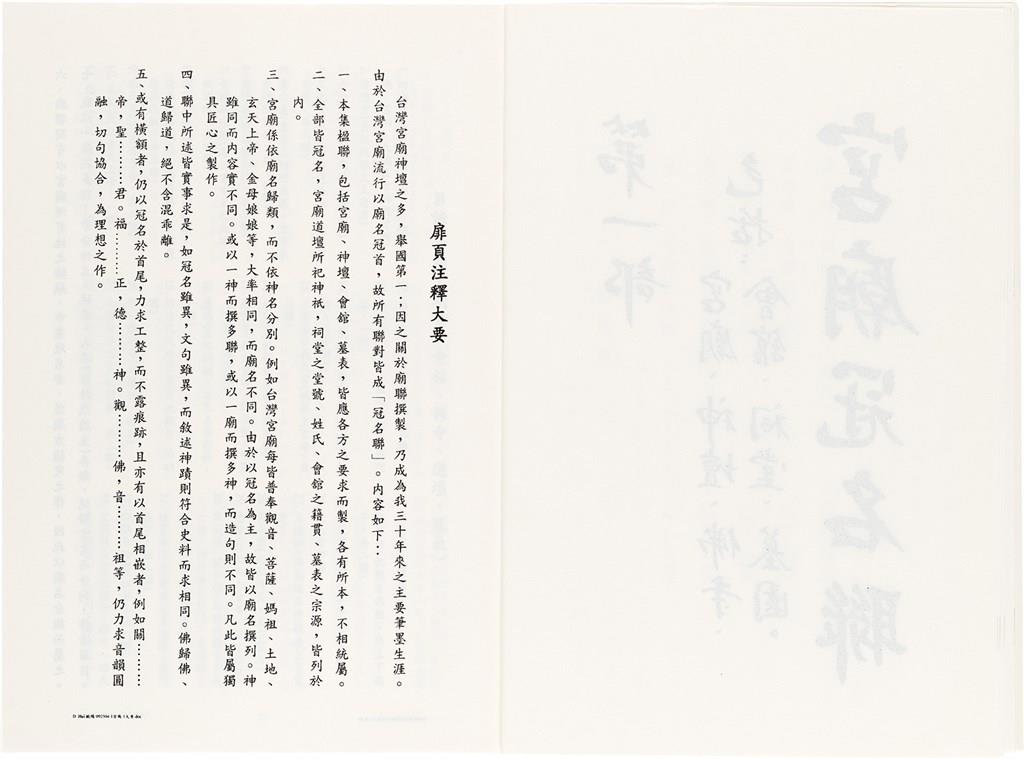 扉頁注釋大要
台灣宮廟神壇之多，舉國第一；因之關於廟聯撰製，乃成為我三十年來之主要筆墨生涯。
由於台灣宮廟流行以廟名冠首，故所有聯對皆成「冠名聯」。內容如下：
一、本集楹聯，包括宮廟、神壇、會舘、墓表，皆應各方之要求而製，各有所本，不相統屬。
二、全部皆冠名，宮廟道壇所祀神祇，祠堂之堂號、姓氏、會舘之籍貫、墓表之宗源，皆列於
內。
三、宮廟係依廟名歸類，而不依神名分別。例如台灣宮廟每皆普奉觀音、菩薩、媽祖、土地、
玄天上帝、金母娘娘等，大率相同，而廟名不同。由於以冠名為主，故皆以廟名撰列。神
雖同而內容實不同。或以一神而撰多聯，或以一廟而撰多神，而造句則不同。凡此皆屬獨
具匠心之製作。
四、聯中所述皆實事求是，如冠名雖異，文句雖異，而敘述神蹟則符合史料而求相同。佛歸佛、
道歸道，絕不含混乖離。
五、或有橫額者，仍以冠名於首尾，力求工整，而不露痕跡，且亦有以首尾相嵌者，例如關………
帝，聖………君。福………正，德…………神。觀…………佛，音…………祖等，仍力求音韻圓
融，切句協合，為理想之作。
宮廟冠名聯
包括：會舘、祠堂、墓園。
宮廟、神壇、佛寺、
第一部